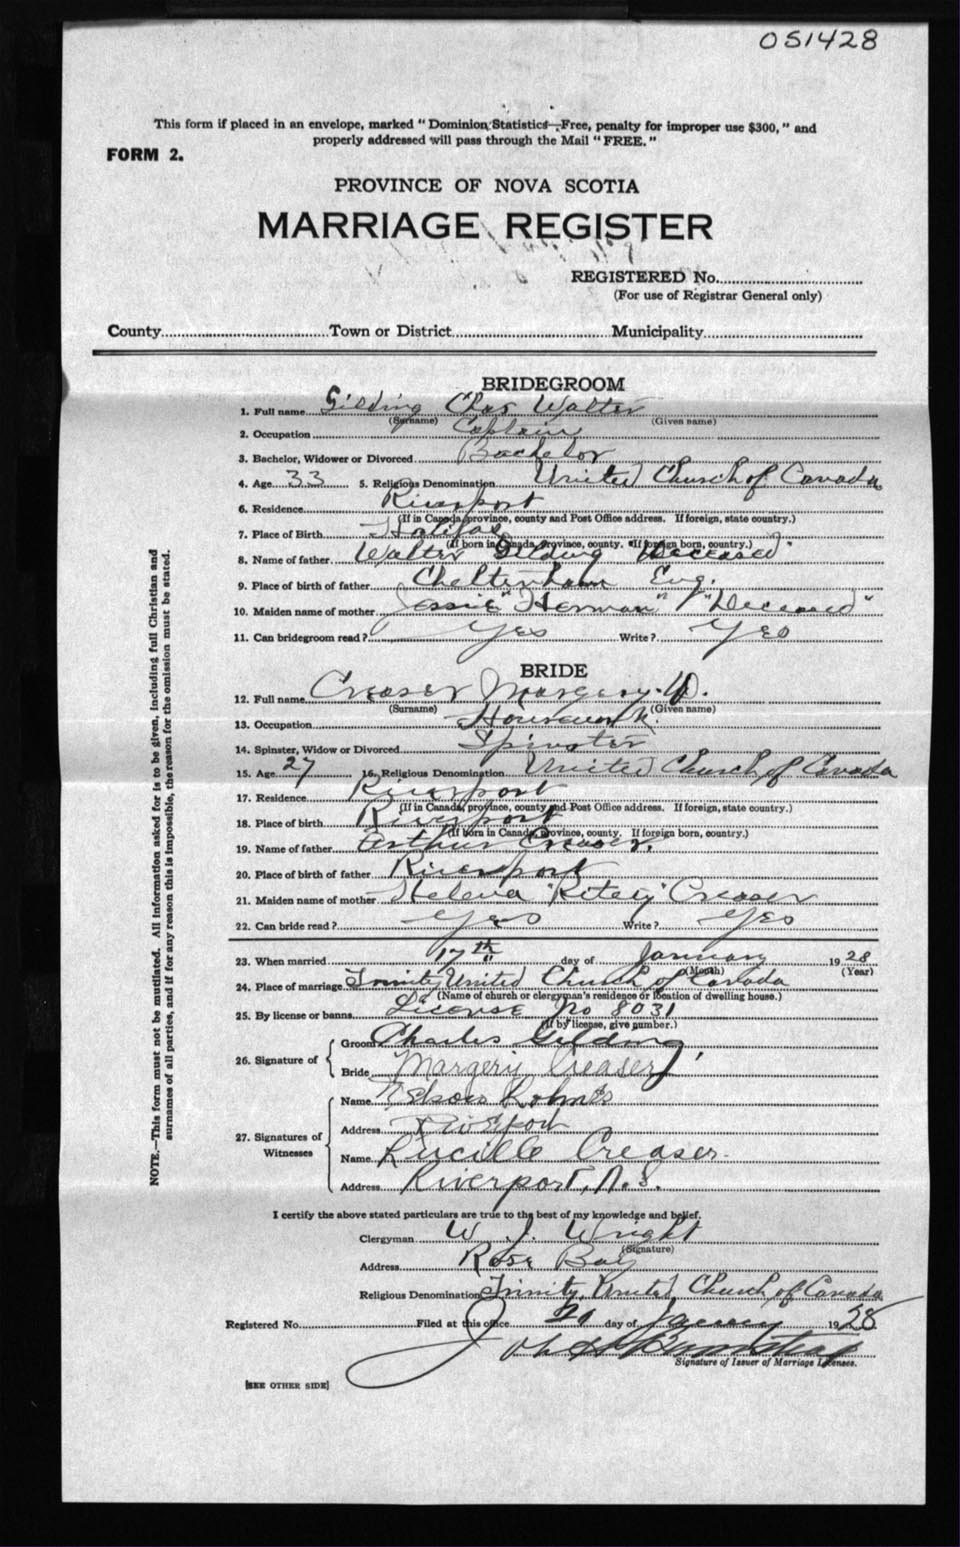 051428
This form if placed in an envelope, marked "Dominion Statistics—Free, penalty for improper use $300," and
properly addressed will pass through the Mail "FREE."
FORM 2.
PROVINCE OF NOVA SCOTIA
MARRIAGE REGISTER
REGISTERED No.
(For use of Registrar General only)
County Town or District Municipality
BRIDEGROOM
1. Full name Gilding Chas Walter
(Surname) (Given name)
2. Occupation Captain
3. Bachelor, Widower or Divorced Bachelor
4. Age 33 5. Religious Denomination United Church of Canada
6. Residence Riverport
(If in Canada, province, county and Post Office address. If foreign, state country.)
7. Place of Birth Halifax
(If born in Canada, province, county. If foreign born, country.)
8. Name of father Walter Gilding "Deceased"
9. Place of birth of father Cheltenham Eng.
10. Maiden name of mother Jessie "Herman" "Deceased"
11. Can bridegroom read? Yes Write? Yes
BRIDE
12. Full name Creaser Margery
(Surname) (Given name)
13. Occupation Housework
14. Spinster, Widow or Divorced Spinster
15. Age 27 16. Religious Denomination United Church of Canada
17. Residence Riverport
(If in Canada, province, county and Post Office address. If foreign, state country.)
18. Place of birth Riverport
(If born in Canada, province, county. If foreign born, country.)
19. Name of father Arthur Creaser.
20. Place of birth of father Riverport
21. Maiden name of mother Helena "Ritcey" Creaser
22. Can bride read? Yes Write? Yes
23. When married 17th day of January 1928
(Month) (Year)
24. Place of marriage Trinity United Church of Canada
(Name of church or clergyman's residence or location of dwelling house.)
25. By license or banns License No 8031
(If by license, give number.)
26. Signature of
Groom Charles Gilding
Bride Margery Creaser
27. Signatures of
Witnesses
Name
Address Riverport
Name Lucille Creaser
Address Riverport, N.S.
I certify the above stated particulars are true to the best of my knowledge and belief.
Clergyman W. J. Wright
(Signature)
Address Rose Bay
Religious Denomination Trinity United Church of Canada
Registered No. Filed at this office day of January 1928
Signature of Issuer of Marriage Licenses.
[SEE OTHER SIDE]
NOTE.—This form must not be mutilated. All information asked for is to be given, including full Christian and
surnames of all parties, and if for any reason this is impossible, the reason for the omission must be stated.